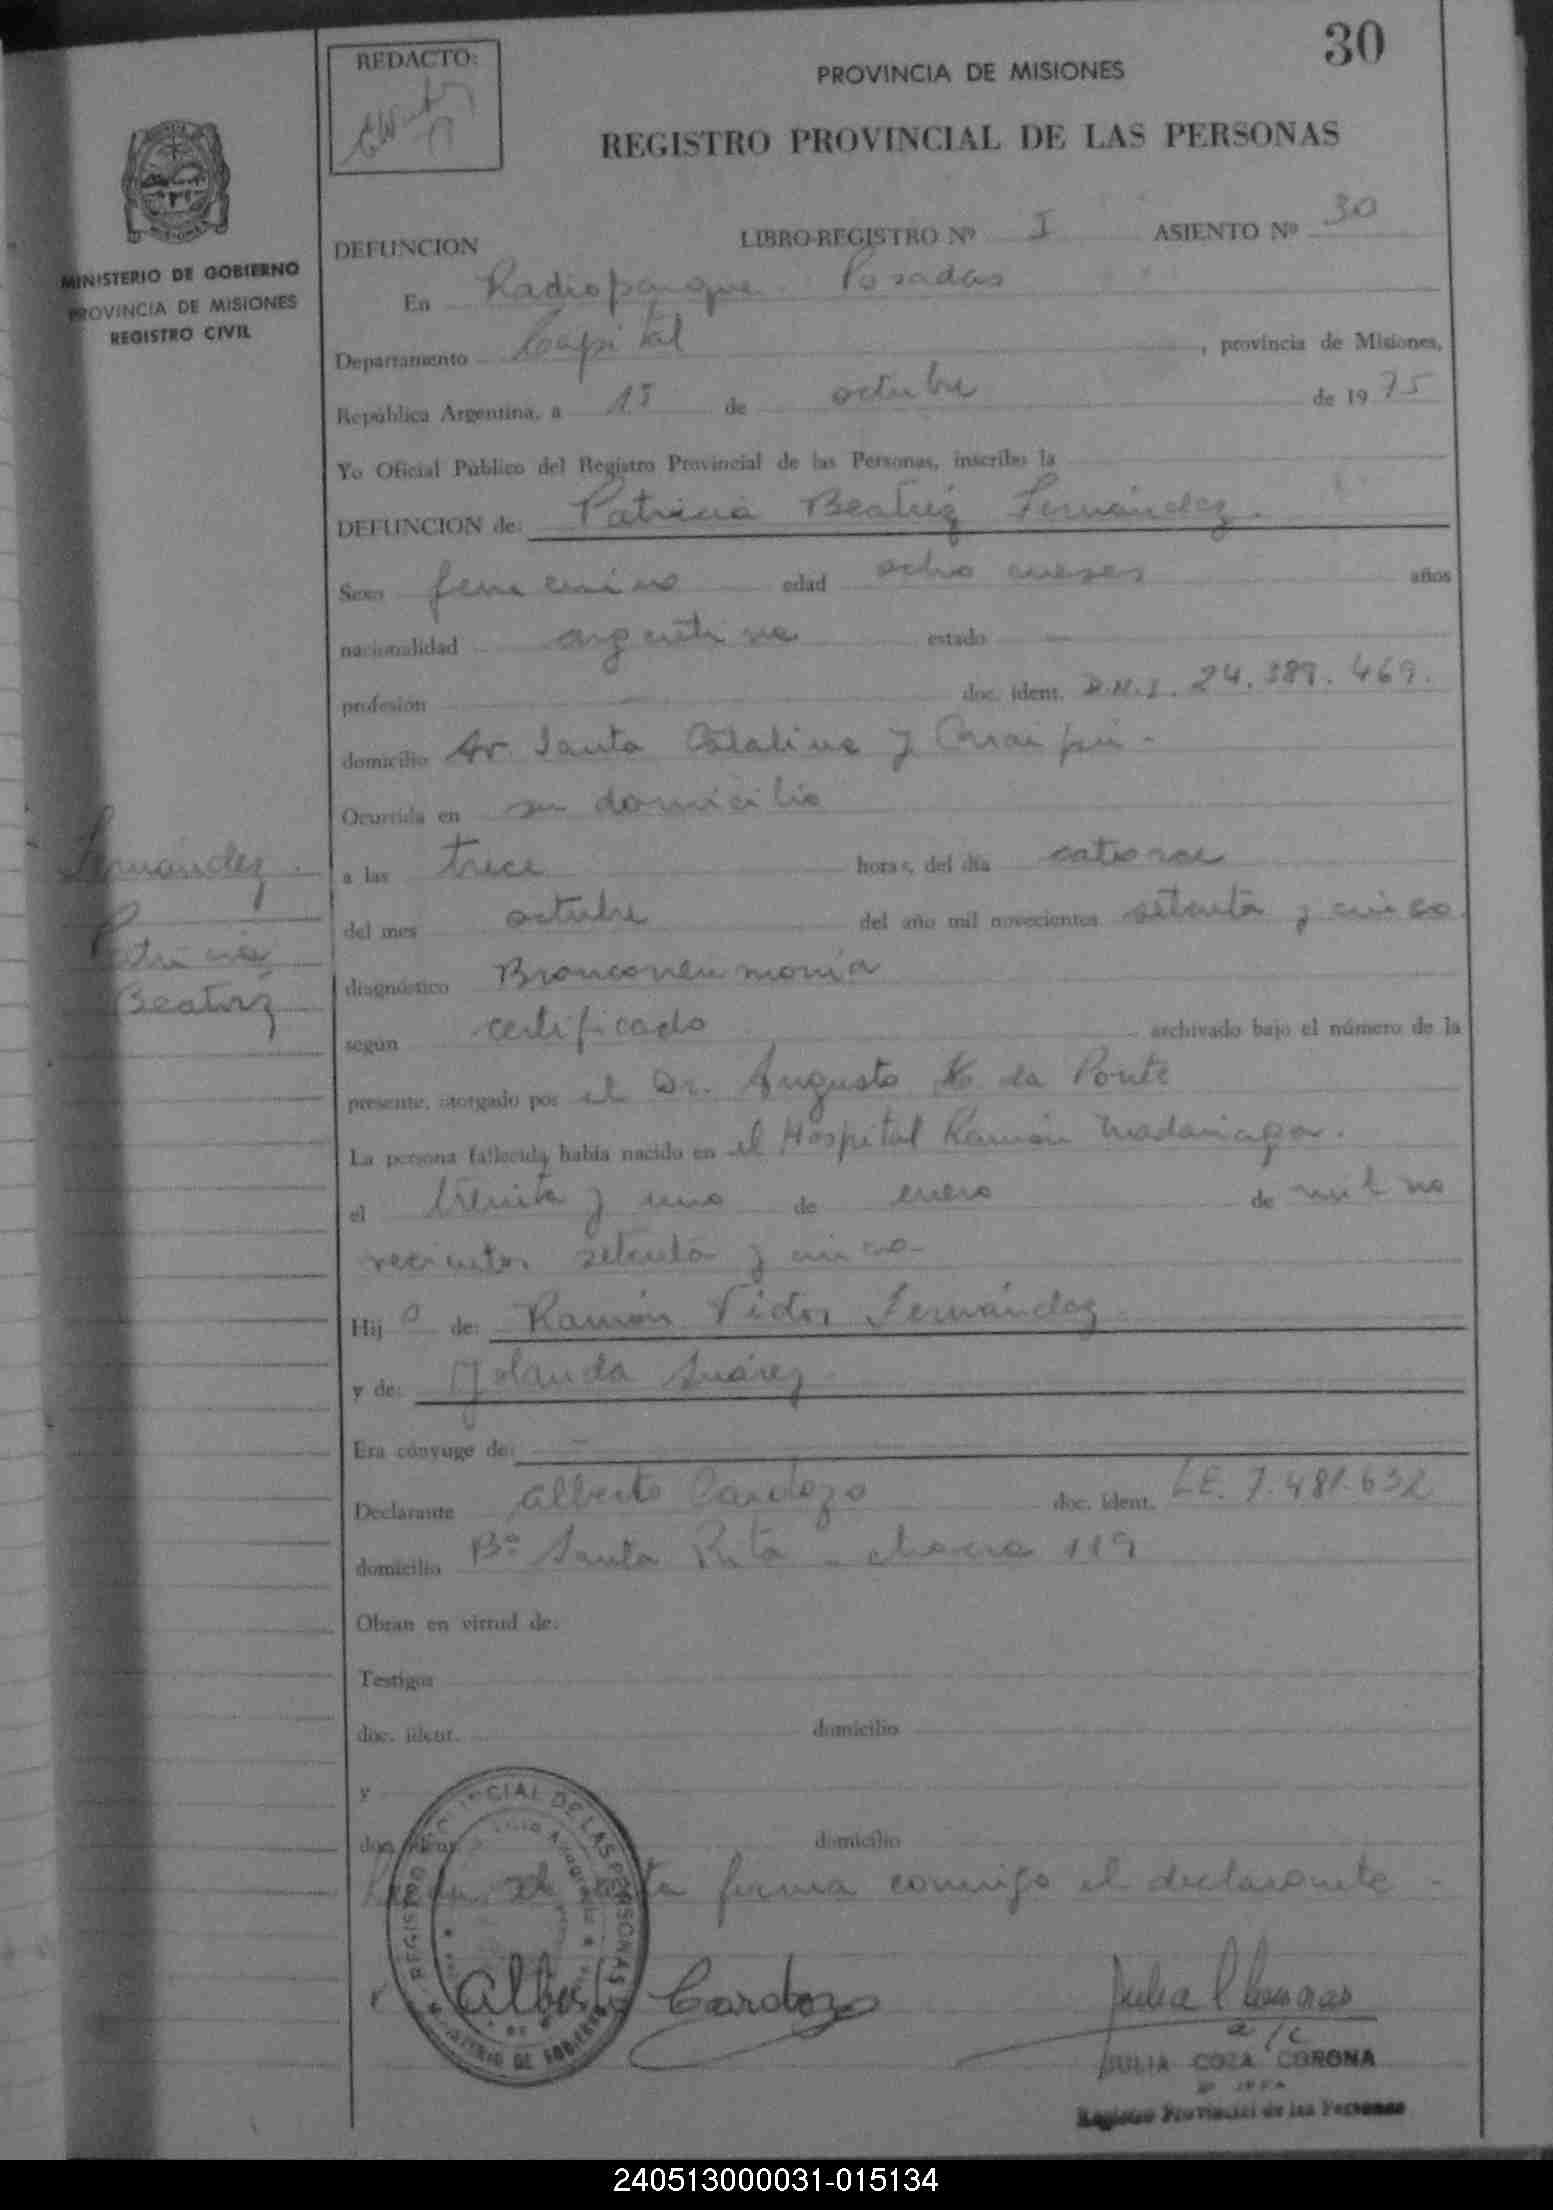 30
REDACTO:
PROVINCIA DE MISIONES
REGISTRO PROVINCIAL DE LAS PERSONAS
MINISTERIO DE GOBIERNO
PROVINCIA DE MISIONES
REGISTRO CIVIL
DEFUNCION LIBRO-REGISTRO Nº I ASIENTO Nº 30
En Radioparque Posadas
Departamento Capital, provincia de Misiones,
República Argentina, a 15 de octubre de 1975
Yo Oficial Público del Registro Provincial de las Personas, inscribo la
DEFUNCION de: Patricia Beatriz Fernández.
Sexo femenino edad ocho meses años
nacionalidad argentina estado —
profesión — doc. ident. D.N.I. 24.389.469.
domicilio Av. Santa Catalina y
Ocurrida en su domicilio
Fernández
Patricia
Beatriz
a las trece horas, del día catorce
del mes octubre del año mil novecientos setenta y cinco.
diagnóstico Bronconeumonía
según certificado archivado bajo el número de la
presente, otorgado por el Dr. Augusto da Ponte
La persona fallecida había nacido en el Hospital Ramón Madariaga.
el treinta y uno de enero de mil no
vecientos setenta y cinco-
Hij a de: Ramón Victor Fernández
y de: Yolanda Suárez
Era cónyuge de: —
Declarante Alberto Cardozo doc. ident. L.E. 7.481.632
domicilio Bº Santa Rita - chacra 119
Obran en virtud de:
Testigos
doc. ident. domicilio
y
doc. ident. domicilio
firma conmigo el declarante -
REGISTRO PROVINCIAL DE LAS PERSONAS
MINISTERIO DE GOBIERNO
Alberto Cardozo
a/c
JULIA COZA CORONA
Registro Provincial de las Personas
240513000031-015134